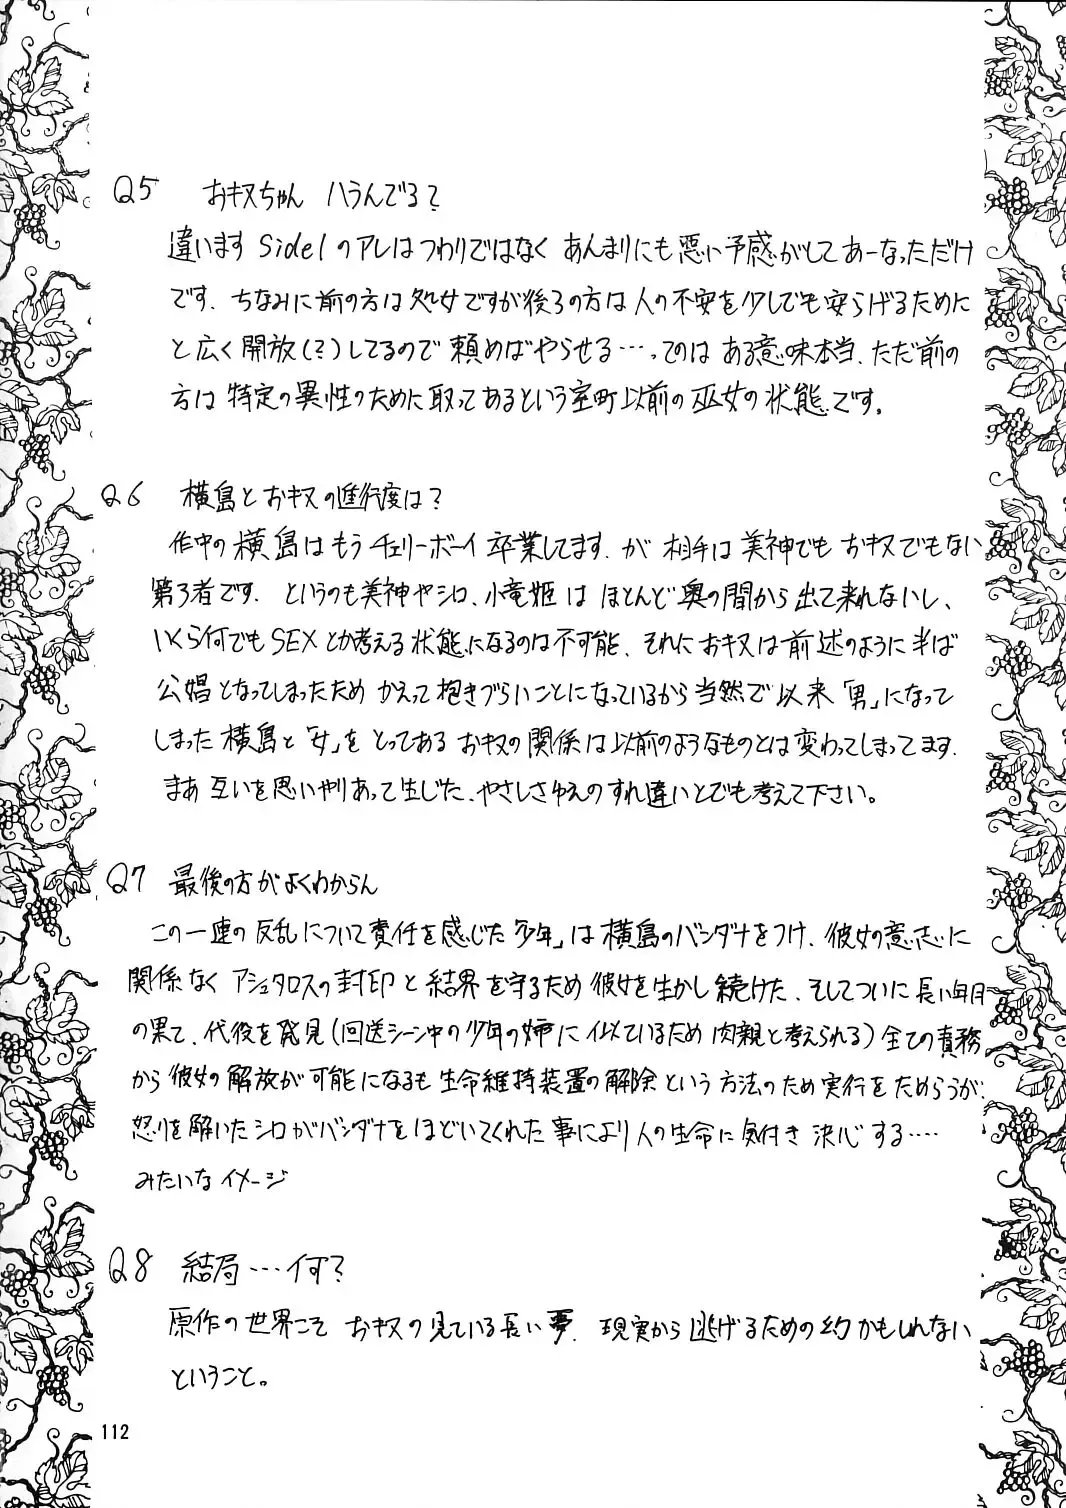 Q5 おキヌちゃん ハラんでる?
違います Side1のアレはつわりではなく あんまりにも悪い予感がしてあーなっただけ
です. ちなみに前の方は処女ですが後ろの方は人の不安を少しでも安らげるために
と広く開放(?)してるので頼めばやらせる…ってのは ある意味本当. ただ前の
方は 特定の異性のために取ってあるという室町以前の巫女の状態です。
Q6 横島とおキヌの進行度は?
作中の横島はもうチェリーボーイ卒業してます. が 相手は美神でもおキヌでもない
第3者です. というのも美神やシロ、小竜姫は ほとんど奥の間から出て来れないし、
いくら何でもSEXとか考える状態になるのは不可能、それにおキヌは前述のように半ば
公娼となってしまったため かえって抱きづらいことになっているから当然で以来「男」になって
しまった横島と「女」を とってある おキヌの関係は以前のようなものとは変わってしまってます.
まあ互いを思いやりあって生じた、やさしさゆえのすれ違いとでも考えて下さい。
Q7 最後の方がよくわからん
この一連の反乱について責任を感じた「少年」は横島のバンダナをつけ、彼女の意志に
関係なく アシュタロスの封印と結界を守るため彼女を生かし続けた、そしてついに長い年月
の果て、代役を発見(回送シーン中の少年の姉に似ているため肉親と考えられる)全ての責務
から彼女の解放が可能になるも生命維持装置の解除という方法のため実行をためらうが、
怒りを解いたシロがバンダナをほどいてくれた事により人の生命に気付き決心する….
みたいなイメージ
Q8 結局…何?
原作の世界こそ おキヌの見ている長い夢. 現実から逃げるための幻かもしれない
ということ。
112